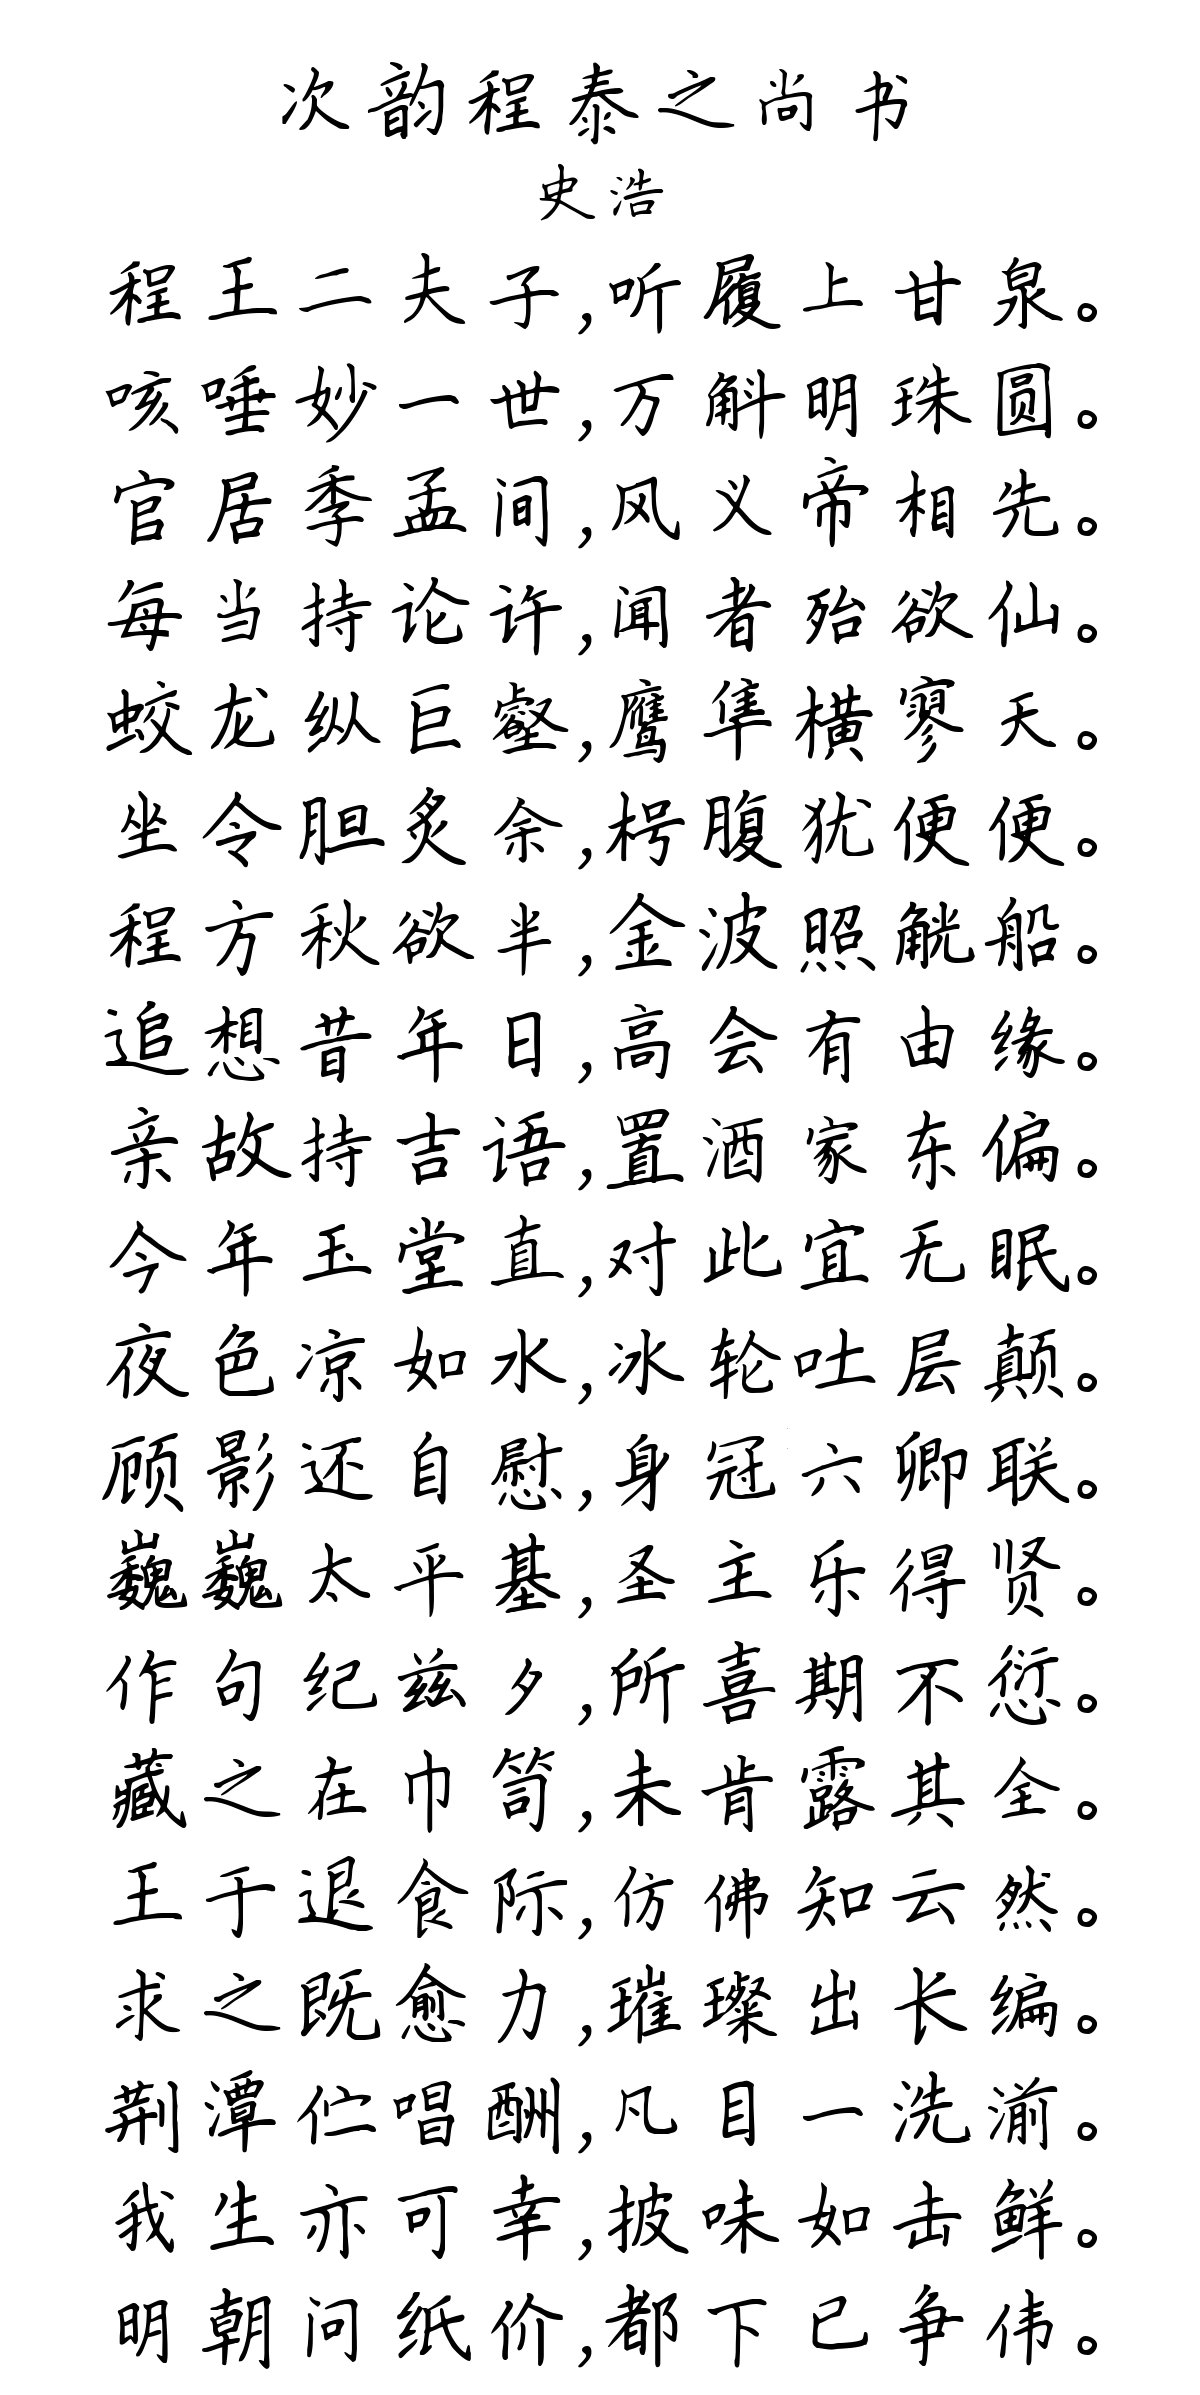 次韵程泰之尚书
史浩
程王二夫子,听履上甘泉。
咳唾妙一世,万斛明珠圆。
官居季孟间,风义帝相先。
每当持论许,闻者殆欲仙。
蛟龙纵巨壑,鹰隼横寥天。
坐令胆炙余,枵腹犹便便。
程方秋欲半,金波照觥船。
追想昔年日,高会有由缘。
亲故持吉语,置酒家东偏。
今年玉堂直,对此宜无眠。
夜色凉如水,冰轮吐层颠。
顾影还自慰,身冠六卿联。
巍巍太平基,圣主乐得贤。
作句纪兹夕,所喜期不愆。
藏之在巾笥,未肯露其全。
王于退食际,仿佛知云然。
求之既愈力,璀璨出长编。
荆潭伫唱酬,凡目一洗湔。
我生亦可幸,披味如击鲜。
明朝问纸价,都下已争伟。